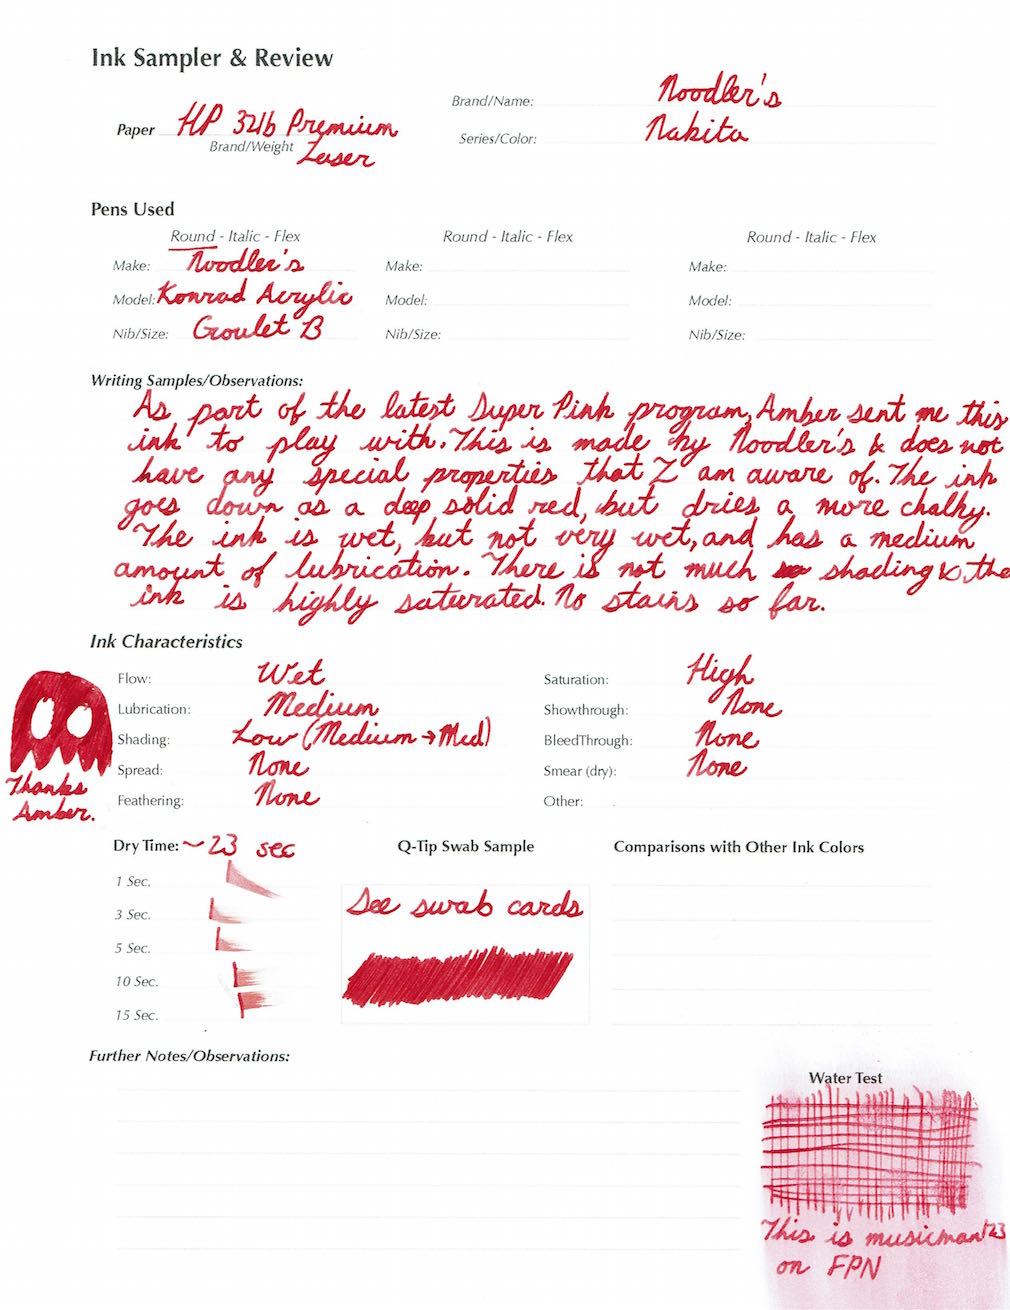 Ink Sampler & Review
Brand/Name: Noodler's
Paper HP 32lb Premium
Brand/Weight Laser
Series/Color: Nakita
Pens Used
Round - Italic - Flex
Make: Noodler's
Model: Konrad Acrylic
Nib/Size: Goulet B
Round - Italic - Flex
Make:
Model:
Nib/Size:
Round - Italic - Flex
Make:
Model:
Nib/Size:
Writing Samples/Observations:
As part of the latest Super Pink program, Amber sent me this
ink to play with. This is made by Noodler's & does not
have any special properties that I am aware of. The ink
goes down as a deep solid red, but dries a more chalky.
The ink is wet, but not very wet, and has a medium
amount of lubrication. There is not much shading &, the
ink is highly saturated. No stains so far.
Ink Characteristics
Flow: Wet
Lubrication: Medium
Shading: Low (Medium → Med)
Spread: None
Feathering: None
Saturation: High
Showthrough: None
BleedThrough: None
Smear (dry): None
Other:
Thanks
Amber.
Dry Time: ~23 sec
1 Sec.
3 Sec.
5 Sec.
10 Sec.
15 Sec.
Q-Tip Swab Sample
See swab cards
Comparisons with Other Ink Colors
Further Notes/Observations:
Water Test
This is musicman123
on FPN